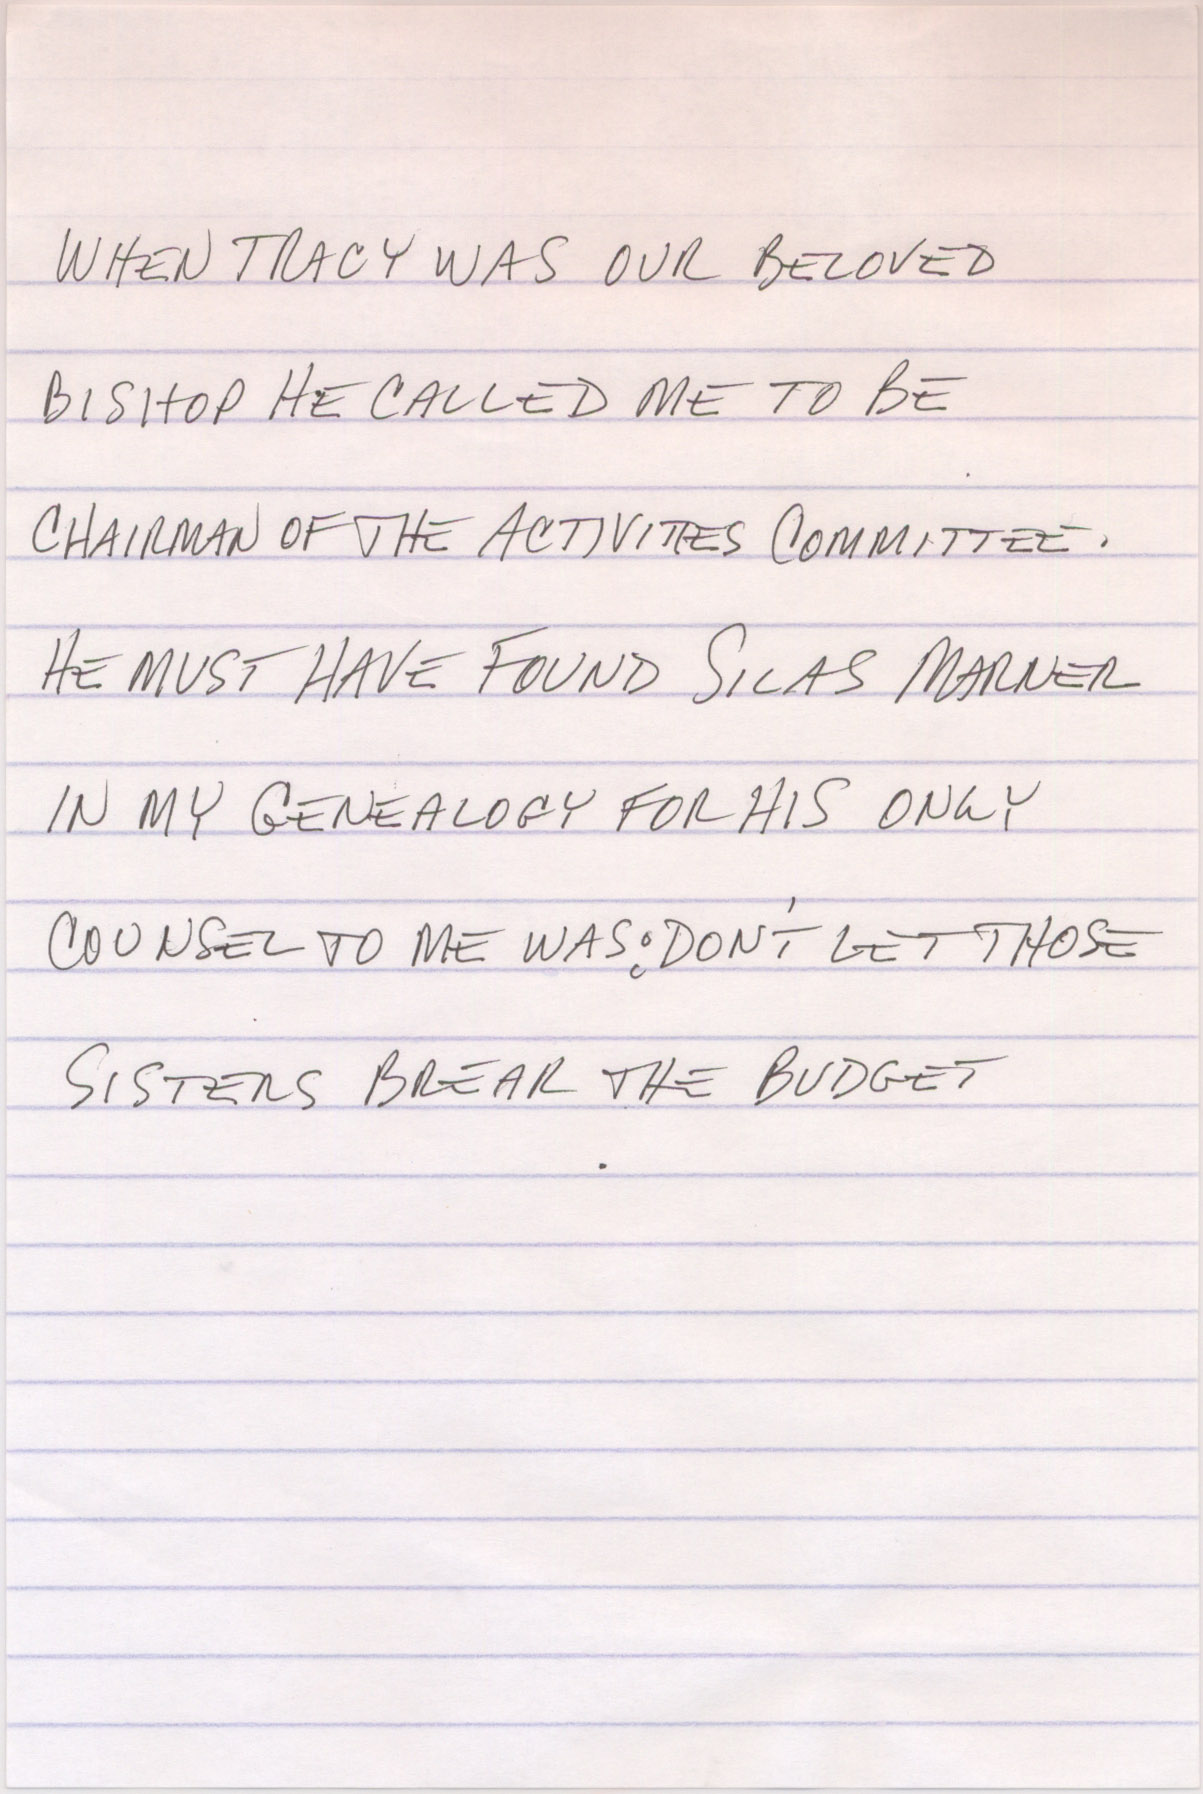 WHEN TRACY WAS OUR BELOVED
BISHOP HE CALLED ME TO BE
CHAIRMAN OF THE ACTIVITIES COMMITTEE.
HE MUST HAVE FOUND SILAS MARNER
IN MY GENEALOGY FOR HIS ONLY
COUNSEL TO ME WAS: DON'T LET THOSE
SISTERS BREAK THE BUDGET